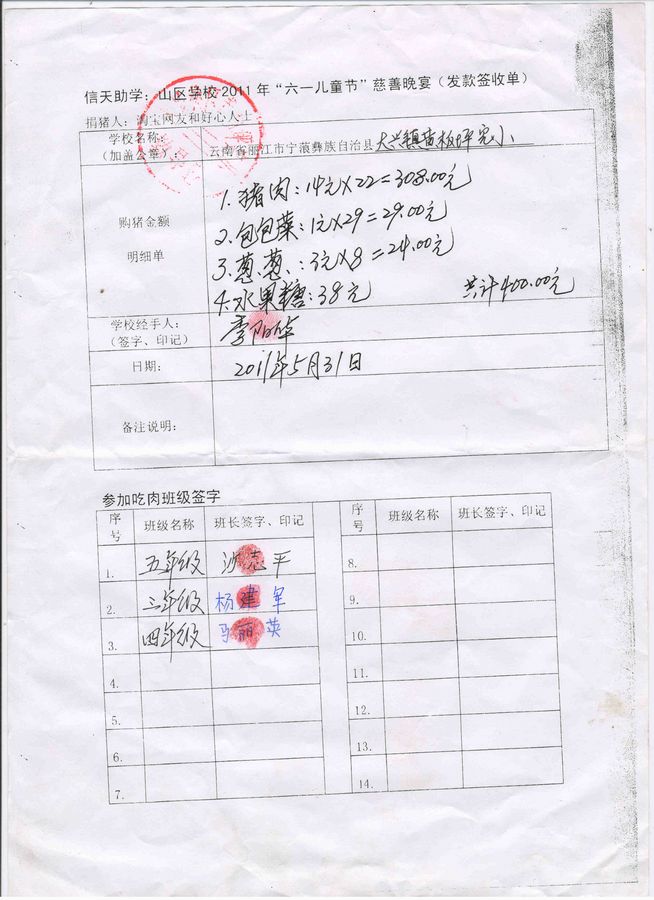 信天助学：山区学校2011年“六一儿童节”慈善晚宴（发款签收单）
捐猪人：淘宝网友和好心人士
学校名称：
（加盖公章）：
云南省丽江市宁蒗彝族自治县大兴镇苗板坪完小
购猪金额
明细单
1.猪肉：14元X22=308.00元
2.包包菜：1元X29=29.00元
3.葱葱.：3元X8=24.00元
4.水果糖：38元
共计400.00元
学校经手人：
（签字、印记）
李阳华
日期：
2011年5月31日
备注说明：
参加吃肉班级签字
序号 班级名称 班长签字、印记
1. 五年级 沙志平
2. 三年级 杨建军
3. 四年级 马丽英
4.
5.
6.
7.
序号 班级名称 班长签字、印记
8.
9.
10.
11.
12.
13.
14.